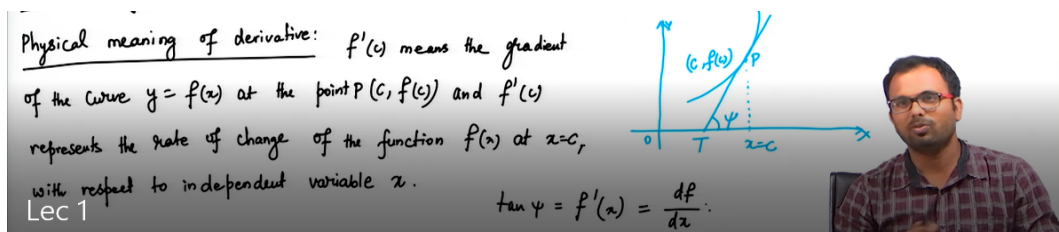 Physical meaning of derivative: f'(c) means the gradient
of the curve y = f(x) at the point P (c, f(c)) and f'(c)
represents the rate of change of the function f(x) at x=c,
with respect to independent variable x.
tan ψ = f'(x) = df/dx :
y
(c, f(c)) P
ψ
O T x=c x
Lec 1